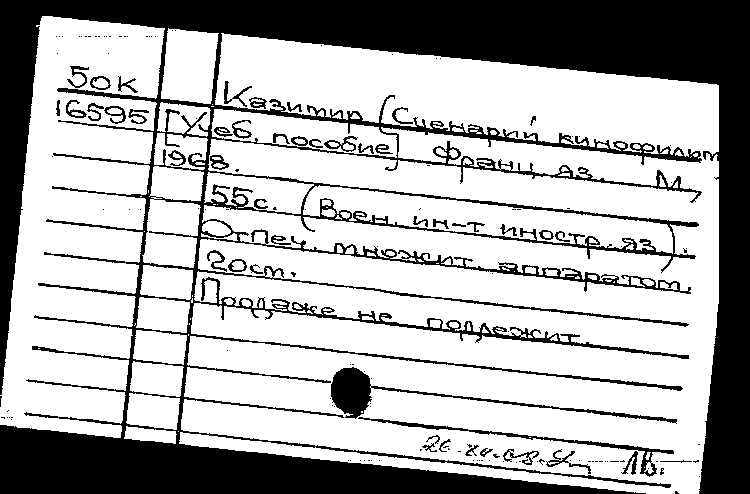 50К
16595
Казимир (Сценарий кинофильм
[Учеб. пособие] Франц. яз. М.,
1968.
55с. (Воен. ин-т иностр. яз.).
Отпеч. множит. аппаратом.
20см.
Продаже не подлежит.
1В.